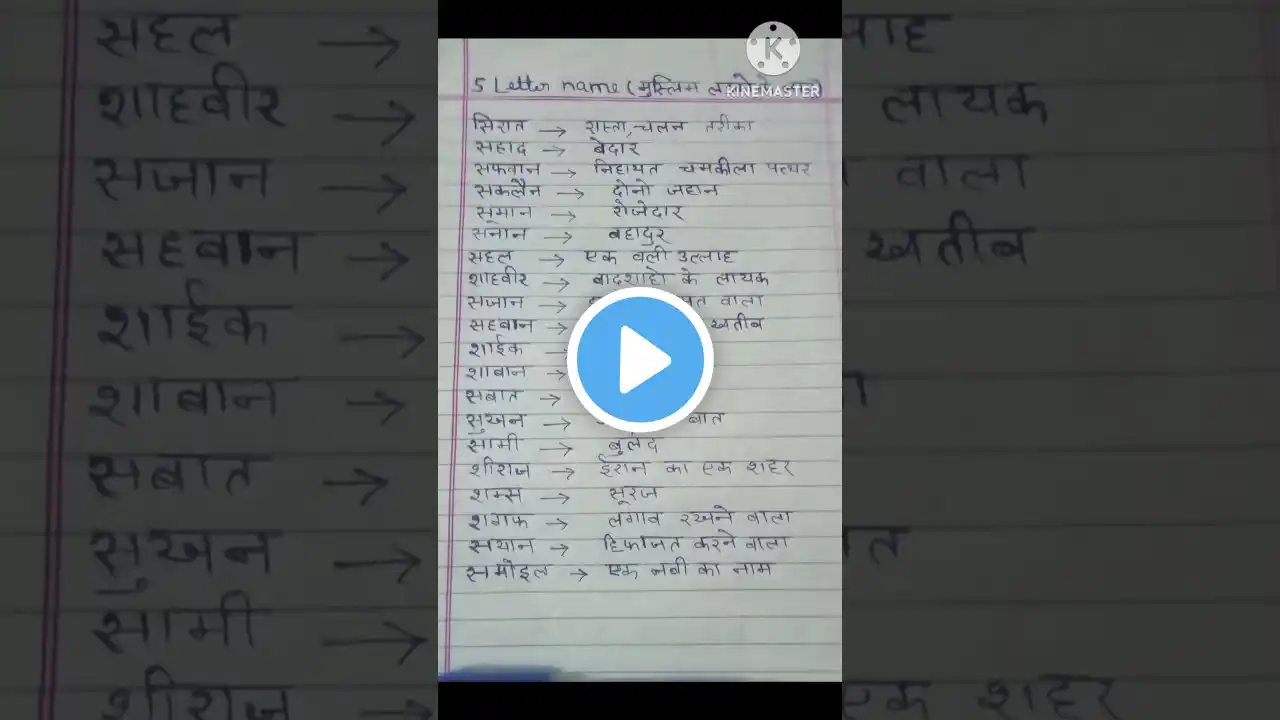 5 Letter name (मुस्लिम
KINEMASTER
सिरात → रास्ता, चलन तरीका
सहाद → बेदार
सफवान → निहायत चमकीला पत्थर
सकलैन → दोनो जहान
सूमान → रोजेदार
सनान → बहादुर
सहल → एक वली उल्लाह
शाहवीर → बादशाहो के लायक
सजान → वाला
सहबान → खतीब
शाईक →
शाबान →
सबात →
सुखन → बात
सामी → बुलंद
शीराज → ईरान का एक शहर
शम्स → सूरज
शगफ → लगाव रखने वाला
सयान → हिफाजत करने वाला
समोइल → एक नबी का नाम